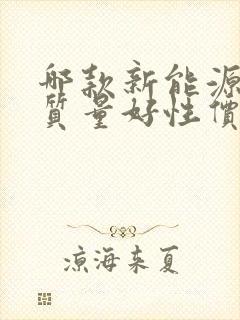 哪款新能源
質量好性價
凉海来夏